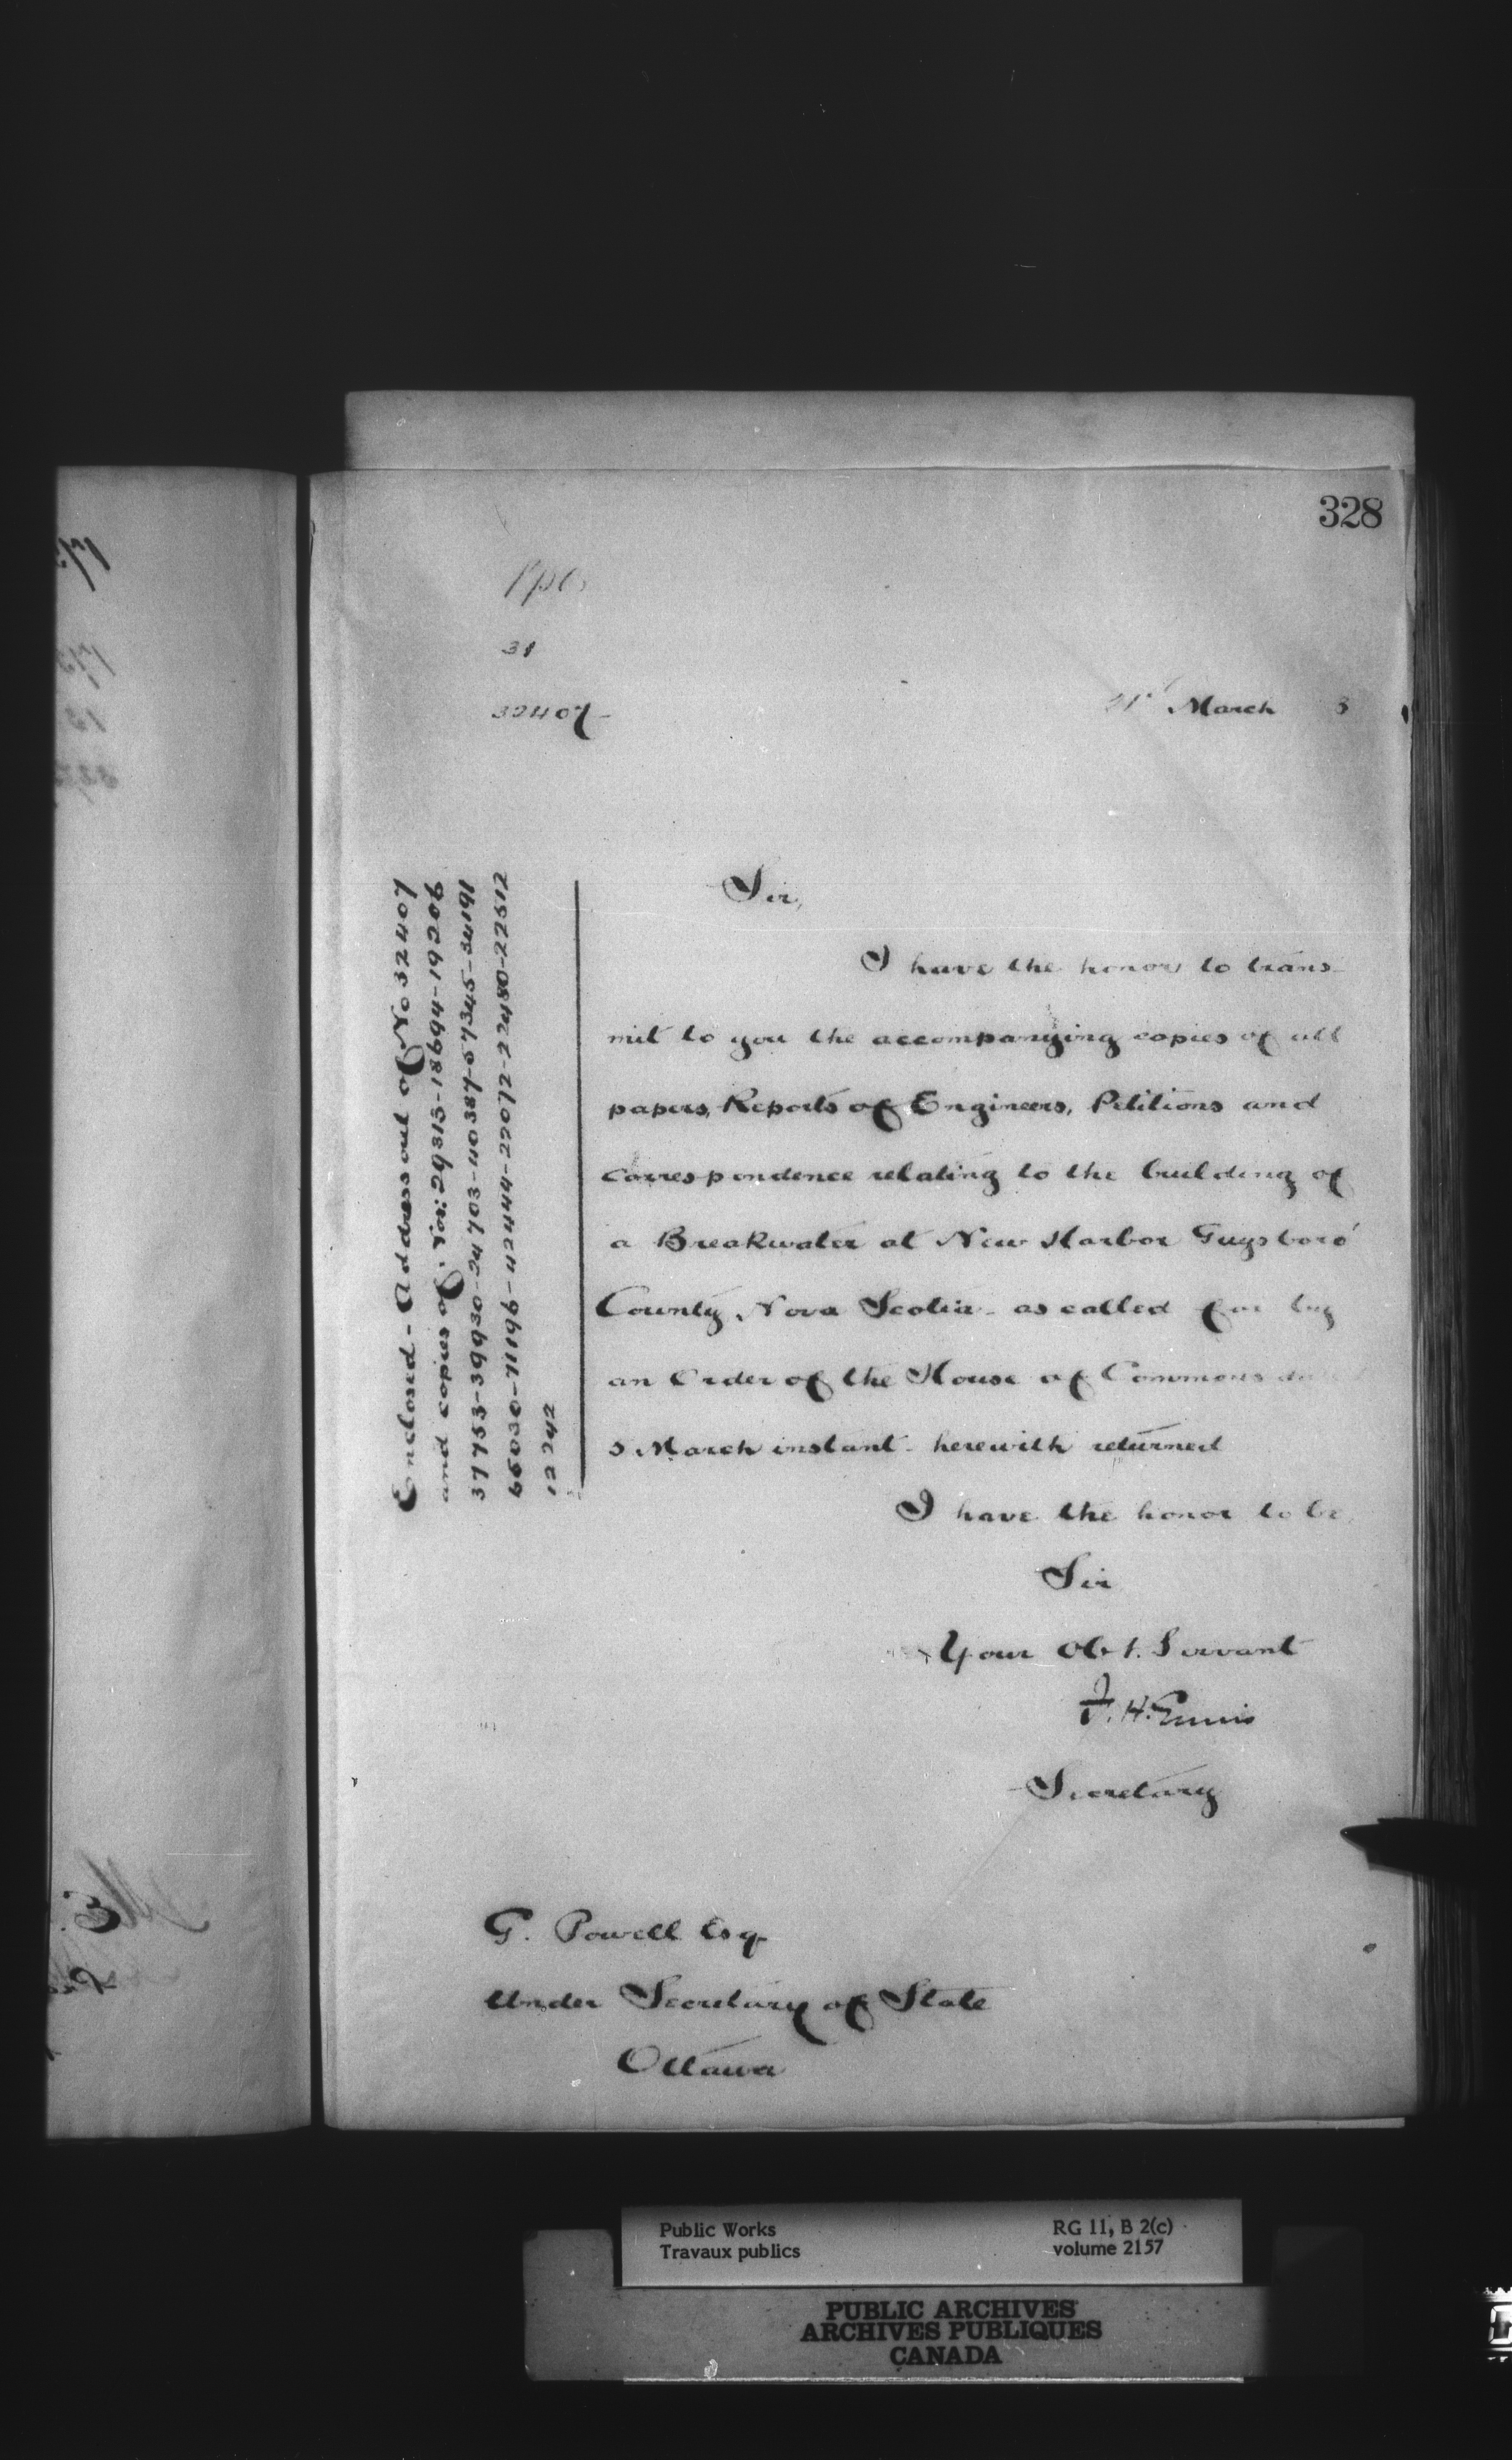 328
31
32407
21st March 3
Enclosed - Address out of No 32407
and copies of. Viz: 29313-18694-19206
37753-39930-24703-40387-57345-34191
65030-71196-42444-22072-22480-22512
12242
Sir,
I have the honor to trans-
mit to you the accompanying copies of all
papers, Reports of Engineers, Petitions and
correspondence relating to the building of
a Breakwater at New Harbor Guysboro'
County, Nova Scotia - as called for by
an Order of the House of Commons
5 March instant - herewith returned
I have the honor to be,
Sir
Your Obt. Servant
F. H. Ennis
Secretary
G. Powell Esq
Under Secretary of State
Ottawa
Public Works
Travaux publics
RG 11, B 2(c)
volume 2157
PUBLIC ARCHIVES
ARCHIVES PUBLIQUES
CANADA